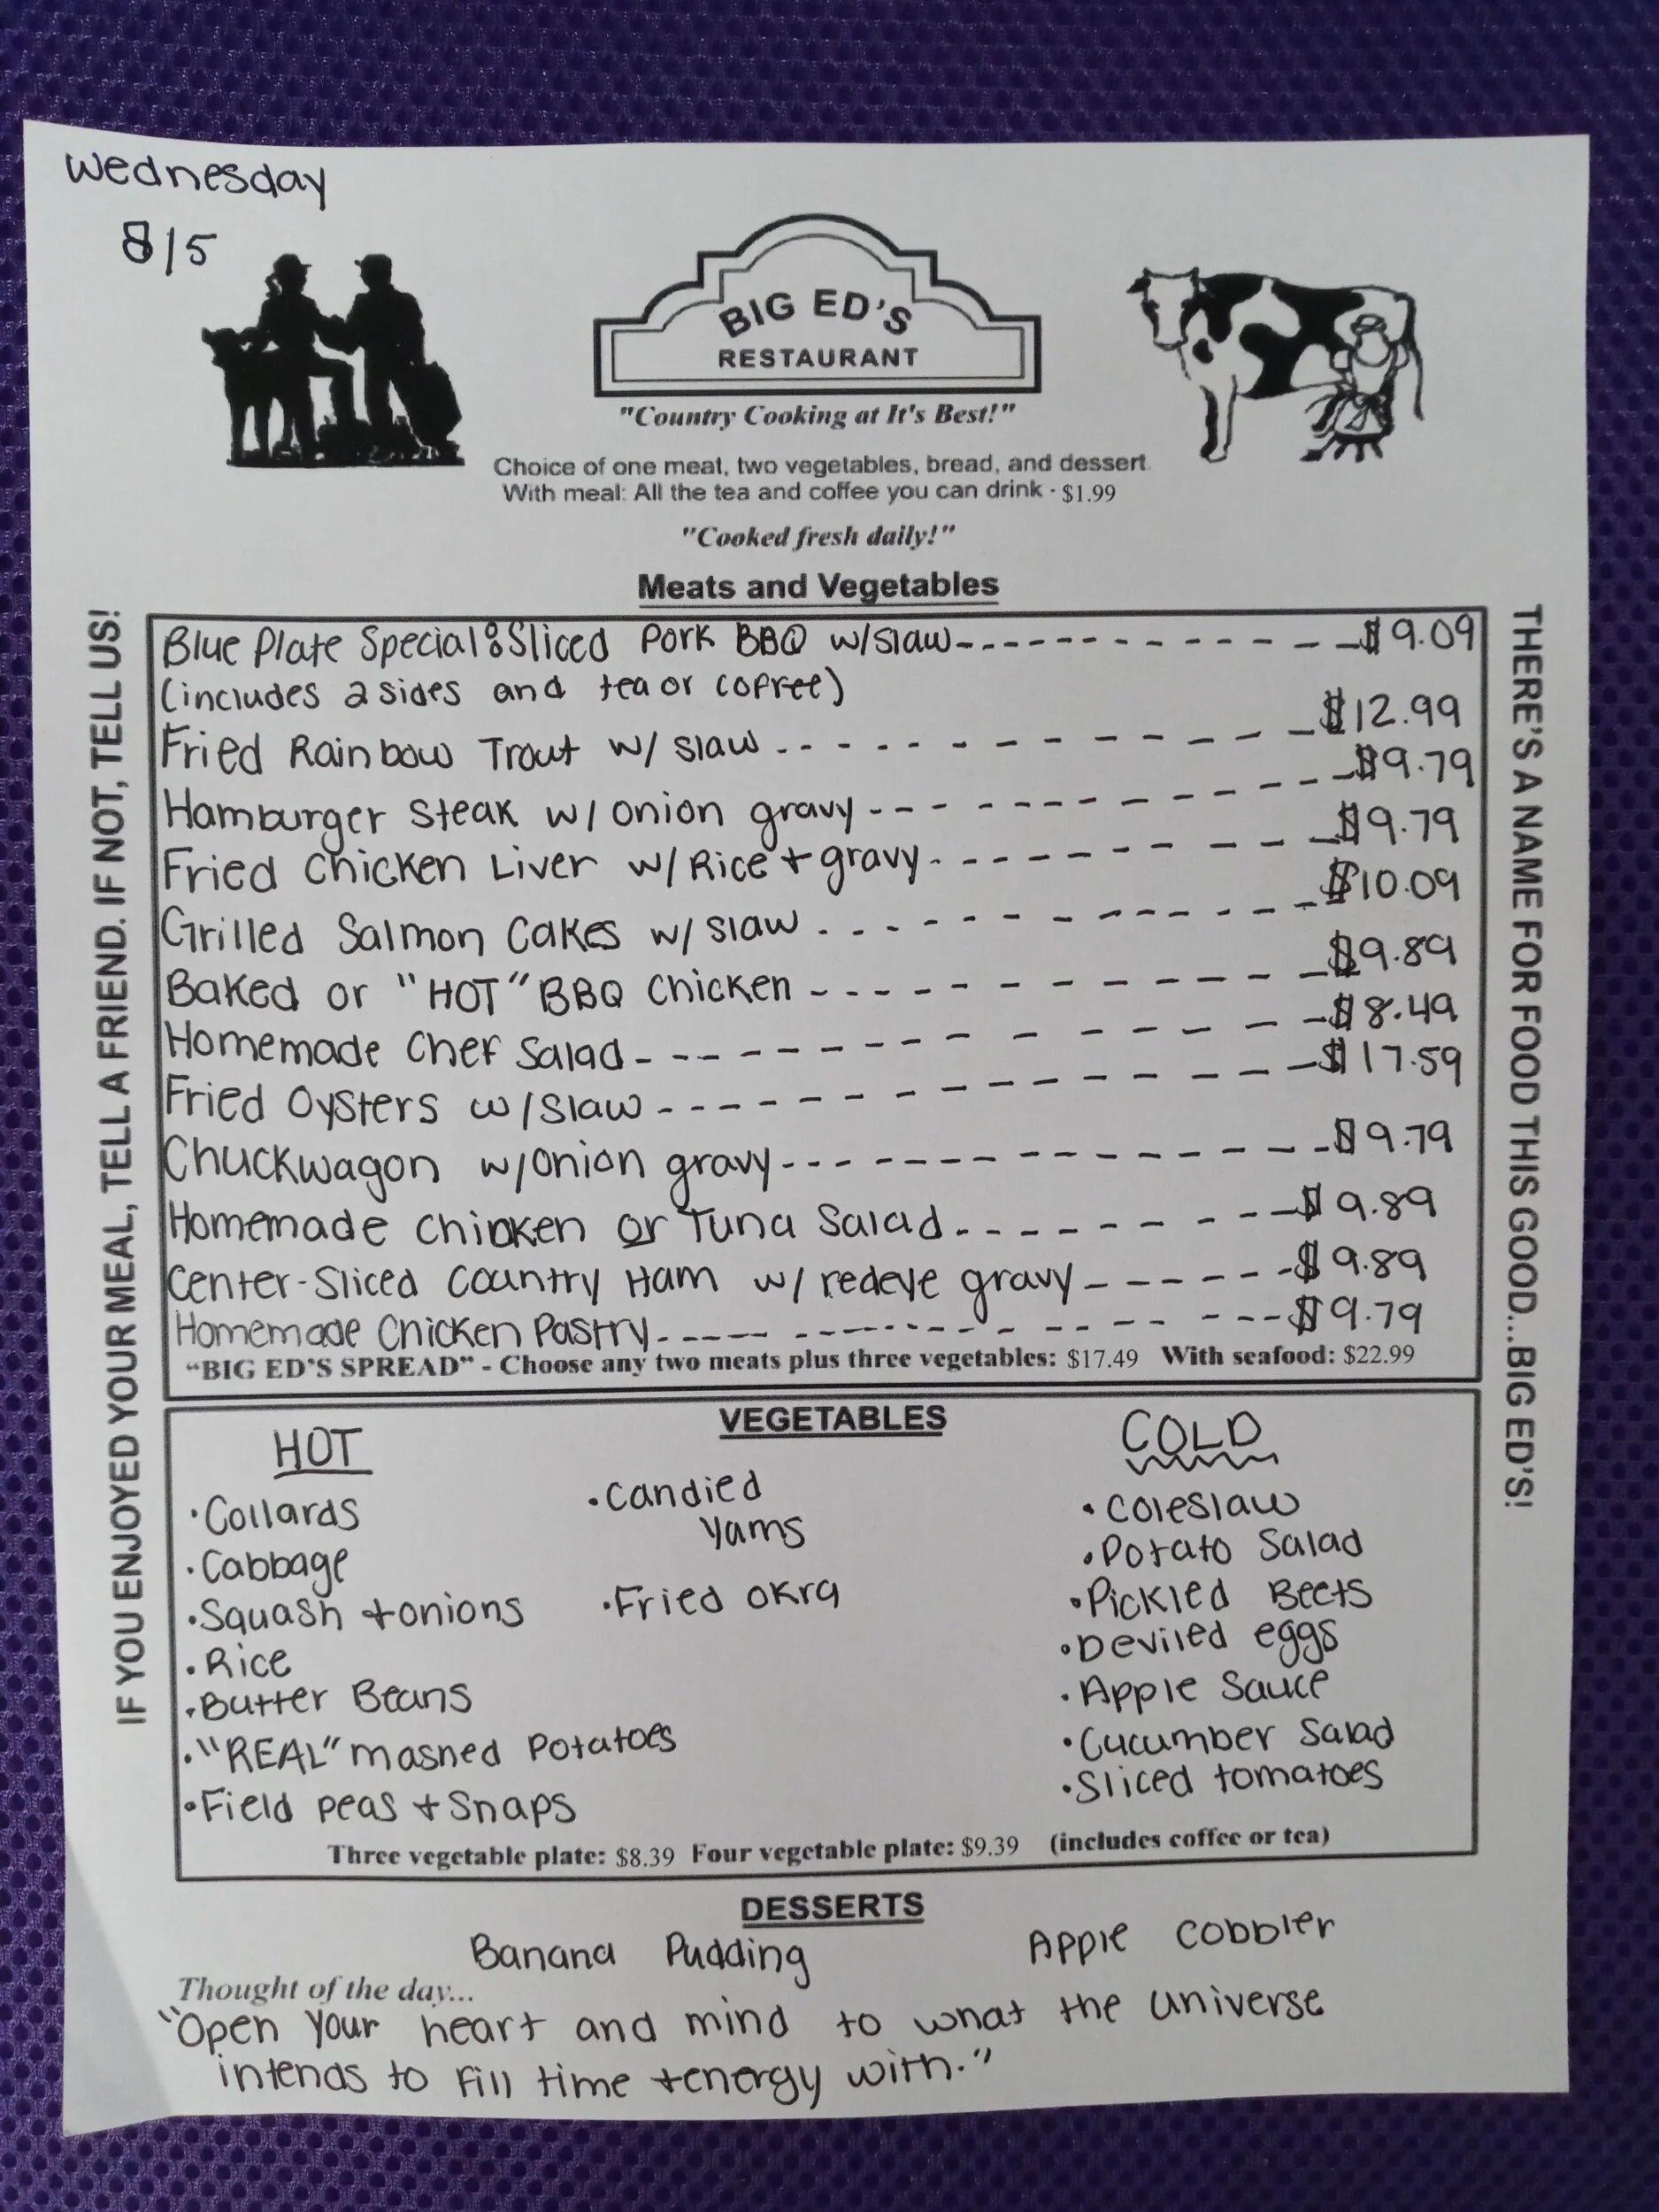 Wednesday
8/5
BIG ED'S
RESTAURANT
"Country Cooking at It's Best!"
Choice of one meat, two vegetables, bread, and dessert.
With meal: All the tea and coffee you can drink - $1.99
"Cooked fresh daily!"
Meats and Vegetables
Blue Plate Special: Sliced Pork BBQ w/slaw------------$9.09
(includes 2 sides and tea or coffee)
Fried Rainbow Trout w/ slaw------------$12.99
Hamburger Steak w/ onion gravy------------$9.79
Fried Chicken Liver w/ Rice + gravy------------$9.79
Grilled Salmon Cakes w/ slaw------------$10.09
Baked or "HOT" BBQ Chicken------------$9.89
Homemade Chef Salad------------$8.49
Fried Oysters w/slaw------------$17.59
Chuckwagon w/onion gravy------------$9.79
Homemade Chicken or Tuna Salad------------$9.89
Center-Sliced Country Ham w/ redeye gravy------------$9.89
Homemade Chicken Pastry------------$9.79
"BIG ED'S SPREAD" - Choose any two meats plus three vegetables: $17.49 With seafood: $22.99
IF YOU ENJOYED YOUR MEAL, TELL A FRIEND. IF NOT, TELL US!
THERE'S A NAME FOR FOOD THIS GOOD...BIG ED'S!
VEGETABLES
HOT
•Collards
•Cabbage
•Squash + onions
•Rice
•Butter Beans
•"REAL" mashed Potatoes
•Field peas + Snaps
•Candied
Yams
•Fried okra
COLD
•Coleslaw
•Potato Salad
•Pickled Beets
•Deviled eggs
•Apple Sauce
•Cucumber Salad
•Sliced tomatoes
Three vegetable plate: $8.39 Four vegetable plate: $9.39 (includes coffee or tea)
DESSERTS
Banana Pudding Apple Cobbler
Thought of the day...
"Open your heart and mind to what the universe
intends to fill time + energy with."